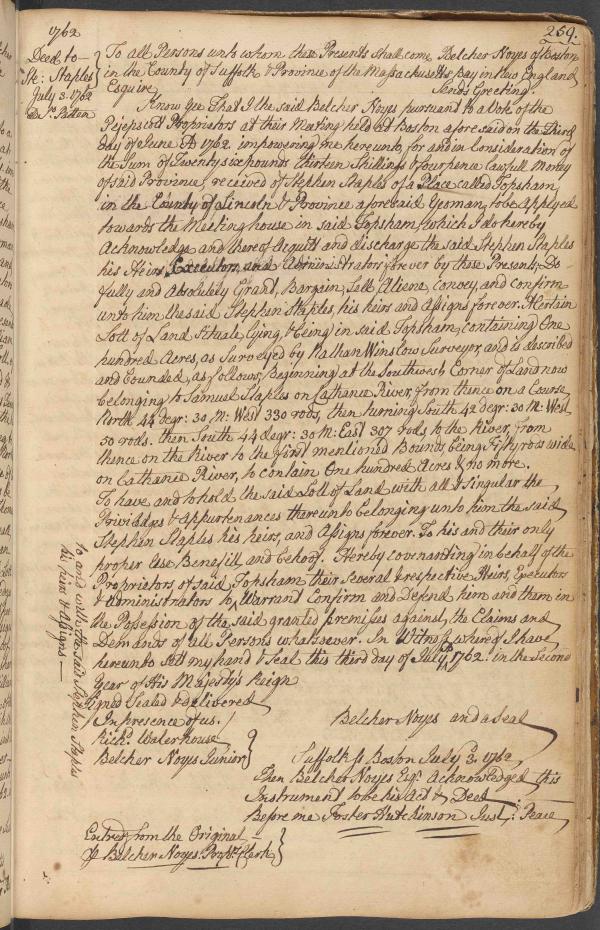 1762
259.
Deed to
Ste: Staples
July 3. 1762
To all Persons unto whom these Presents shall come Belcher Noyes of Boston
in the County of Suffolk & Province of the Massachusetts Bay in New England
Esquire Sends Greeting.
Know yee That I the said Belcher Noyes pursuant to a Vote of the
Pejepscott Proprietors at their Meeting held at Boston aforesaid on the Third
day of June A 1762. impowering me hereunto, for and in Consideration of
the Sum of Twenty six pounds thirteen Shillings & fourpence lawfull Money
of said Province, received of Stephen Staples of a Place called Topsham
in the County of Lincoln & Province aforesaid Yeoman, to be applyed
towards the Meeting house in said Topsham, which I do hereby
Acknowledge and thereof acquitt and discharge the said Stephen Staples
his Heirs, Executors, and Administrators forever by these Presents, Do
fully and Absolutely Grant, Bargain, Sell Aliene, convey, and confirm
unto him the said Stephen Staples, his heirs and Assigns forever. A Certain
Lott of Land Situate, lying, & being in said Topsham, containing One
hundred Acres, as Surveyed by Nathan Winslow Surveyor, and is described
and bounded, as follows, Beginning at the Southwest Corner of Land now
belonging to Samuel Staples on Cathance River, from thence on a Course
North 44 degr: 30 M: West 330 rods, then turning South 42 degr: 30 M: West
50 rods. then South 44 degr: 30 M: East 307 rods to the river, from
thence on the river to the first mentioned Bounds, being Fifty rods wide
on Cathance River, to contain One hundred Acres & no more.
To have and to hold the said Lott of Land with all & singular the
Priviledges & appurtenances thereunto belonging unto him the said
Stephen Staples his heirs, and Assigns forever. To his and their only
proper Use Benefitt, and behoof. Hereby covenanting in behalf of the
Proprietors of said Topsham their Several & respective Heirs, Executors
& Administrators to Warrant Confirm and Defend him and them in
the Possession of the said granted premisses against, the Claims and
Demands of all Persons whatsoever. In Witness whereof I have
hereunto Sett my hand & Seal this third day of July, 1762. in the Second
Year of His Majesty's Reign
to and with the said Stephen Staples
his heirs & Assigns
Signed Sealed & delivered
In presence of us.
Richd. Waterhouse
Belcher Noyes Junior
Belcher Noyes and a Seal
Suffolk ss Boston July 3. 1762
Then Belcher Noyes Esqr. Acknowledged this
Instrument to be his Act & Deed
Before me Foster Hutchinson Just: Peace
Entred from the Original
Belcher Noyes. Propr. Clerk